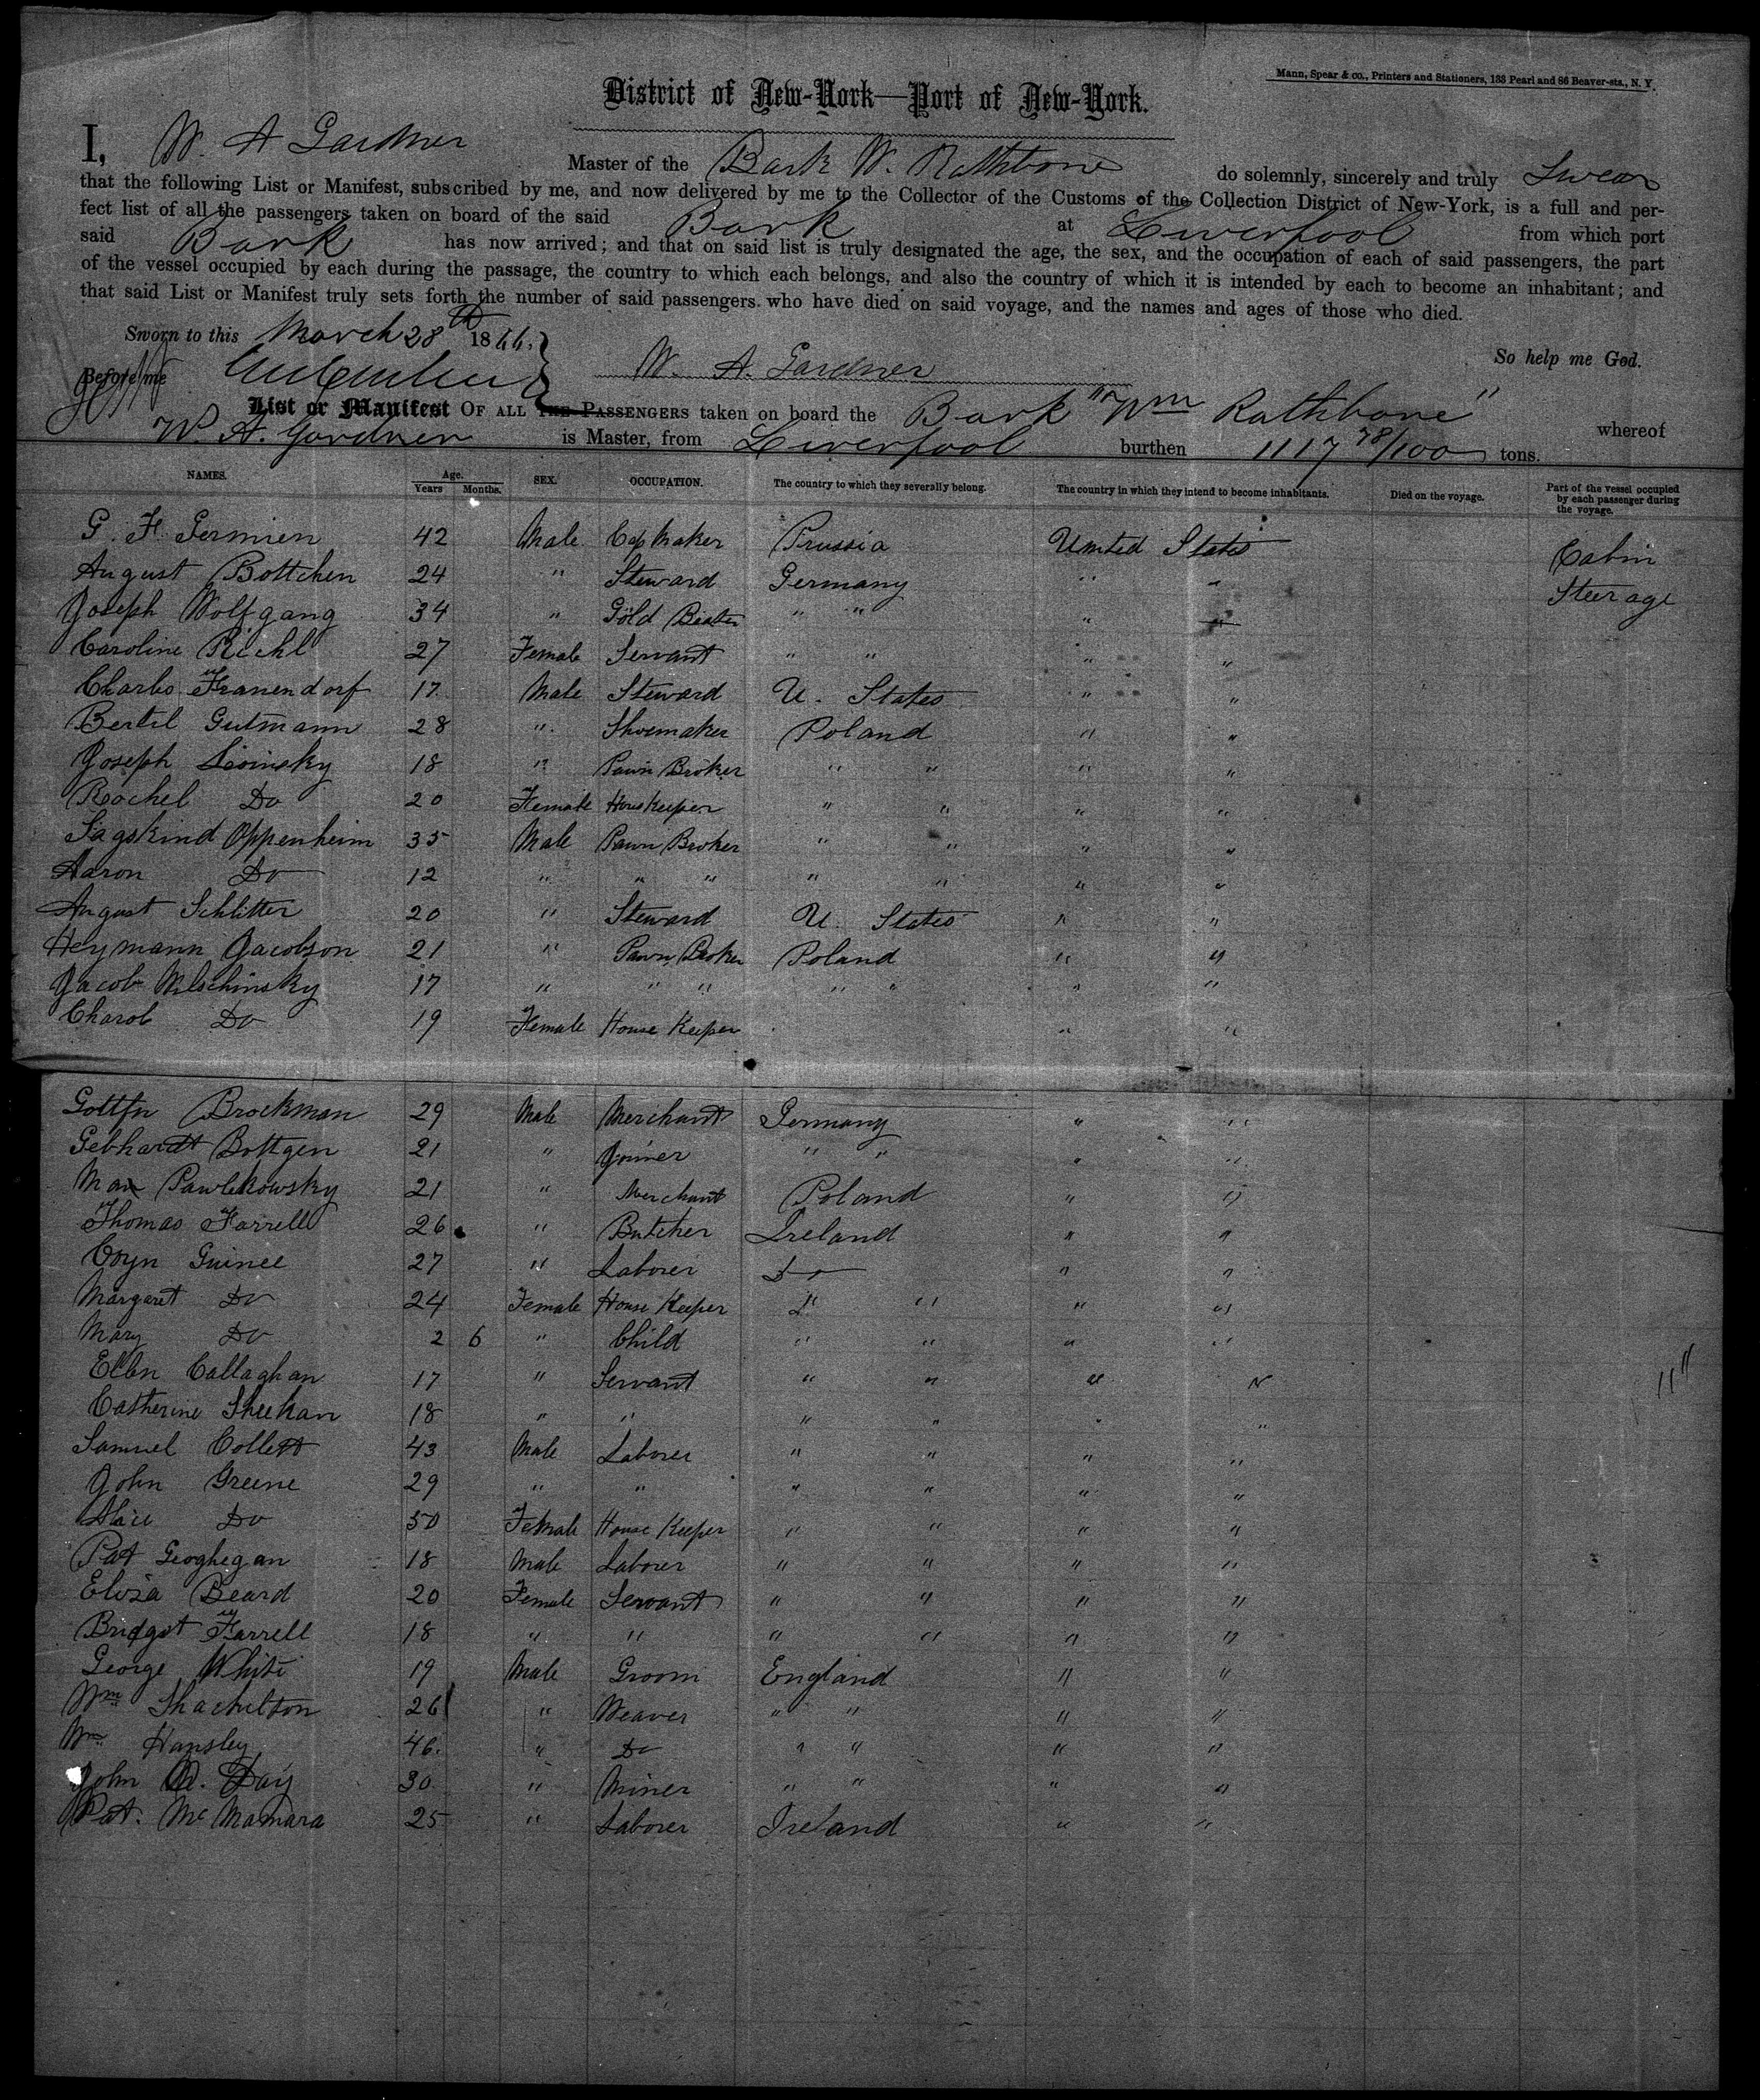 Mann, Spear & co., Printers and Stationers, 133 Pearl and 86 Beaver-sts., N. Y.
District of New-York—Port of New-York.
I, W. A Gardner Master of the Bark W. Rathbone do solemnly, sincerely and truly Swear
that the following List or Manifest, subscribed by me, and now delivered by me to the Collector of the Customs of the Collection District of New-York, is a full and per-
fect list of all the passengers taken on board of the said Bark at Liverpool from which port
said Bark has now arrived; and that on said list is truly designated the age, the sex, and the occupation of each of said passengers, the part
of the vessel occupied by each during the passage, the country to which each belongs, and also the country of which it is intended by each to become an inhabitant; and
that said List or Manifest truly sets forth the number of said passengers who have died on said voyage, and the names and ages of those who died.
Sworn to this March 28th 1866. So help me God.
Before me W. A. Gardner
List or Manifest OF ALL THE PASSENGERS taken on board the Bark "Wm Rathbone" whereof
W. A. Gardner is Master, from Liverpool burthen 1117 78/100 tons.
NAMES. Age. Years Months. SEX. OCCUPATION. The country to which they severally belong. The country in which they intend to become inhabitants. Died on the voyage. Part of the vessel occupied by each passenger during the voyage.
G. F. Germien 42 Male Cap Maker Prussia United States Cabin
August Bottchen 24 " Steward Germany " " Steerage
Joseph Wolfgang 34 " Gold Beater " " " "
Caroline Riehl 27 Female Servant " " " "
Charles Franendorf 17 Male Steward U. States " "
Bertil Gutmann 28 " Shoemaker Poland " "
Joseph Sioinsky 18 " Pawn Broker " " " "
Rachel Do 20 Female Housekeeper " " " "
Sagskind Oppenheim 35 Male Pawn Broker " " " "
Aaron Do 12 " " " " " " "
August Schlitter 20 " Steward U. States " "
Heymann Jacobson 21 " Pawn Broker Poland " "
Jacob Wilschinsky 17 " " " " " " "
Charob Do 19 Female House Keeper " "
Gottfr Brockman 29 Male Merchant Germany " "
Gebhardt Bottgen 21 " Joiner " " " "
Max Pawlikowsky 21 " Merchant Poland " "
Thomas Farrell 26 " Butcher Ireland " "
Coyn Guinee 27 " Laborer Do " "
Margaret Do 24 Female House Keeper " " " "
Mary Do 2 6 " Child " " " "
Ellen Callaghan 17 " Servant " " " "
Catherine Sheehan 18 " " " " " "
Samuel Collett 43 Male Laborer " " " "
John Greene 29 " " " " " "
Alice Do 50 Female House Keeper " " " "
Pat Geoghegan 18 Male Laborer " " " "
Eliza Beard 20 Female Servant " " " "
Bridget Farrell 18 " " " " " "
George White 19 Male Groom England " "
Wm Shackelton 26 " Weaver " " " "
Wm Hansley 46. " Do " " " "
John A. Day 30. " Miner " " " "
Pat. McMamara 25 " Laborer Ireland " "